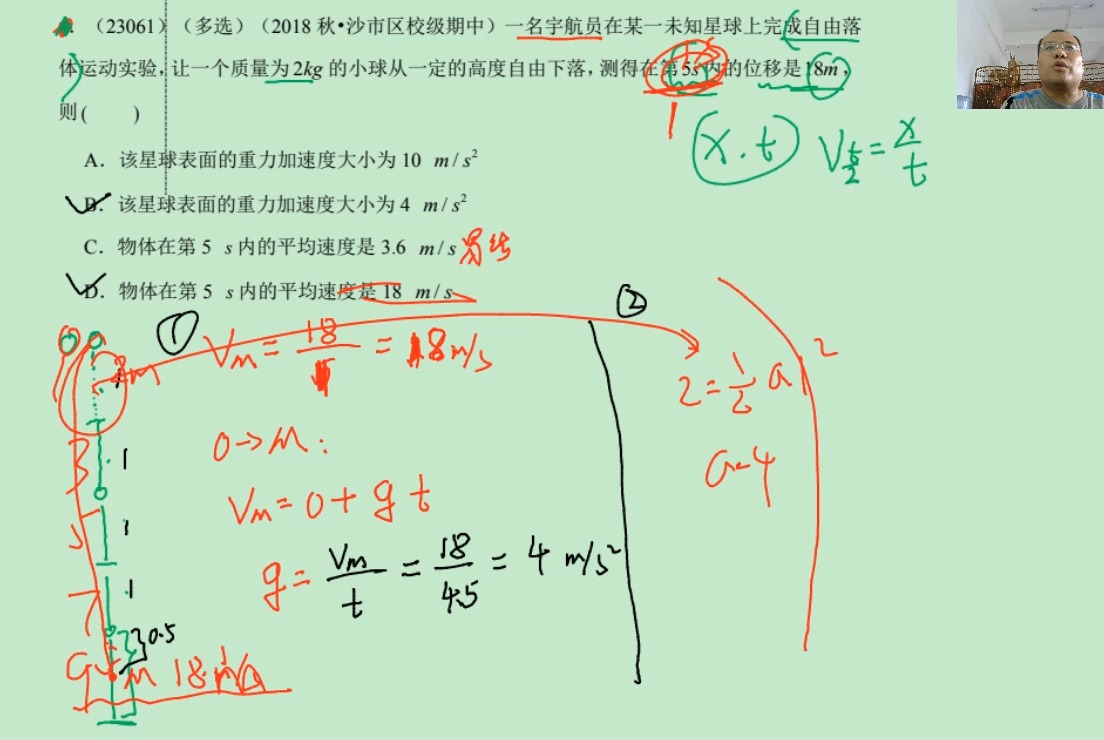 （23061）（多选）（2018 秋•沙市区校级期中）一名宇航员在某一未知星球上完成自由落
体运动实验，让一个质量为2kg 的小球从一定的高度自由下落，测得在第5s内的位移是18m，
则(    )
A．该星球表面的重力加速度大小为 10 m/s²
B．该星球表面的重力加速度大小为 4 m/s²
C．物体在第 5 s 内的平均速度是 3.6 m/s 易错
D．物体在第 5 s 内的平均速度是 18 m/s
1
(x.t) V t/2 = x/t
① Vm = 18/1 = 18m/s
②
2m
2 = 1/2 a 1²
3 1
0→M:
a=4
Vm = 0 + g t
5 1
g = Vm/t = 18/4.5 = 4 m/s²
7 1
0.5
9 M 18m